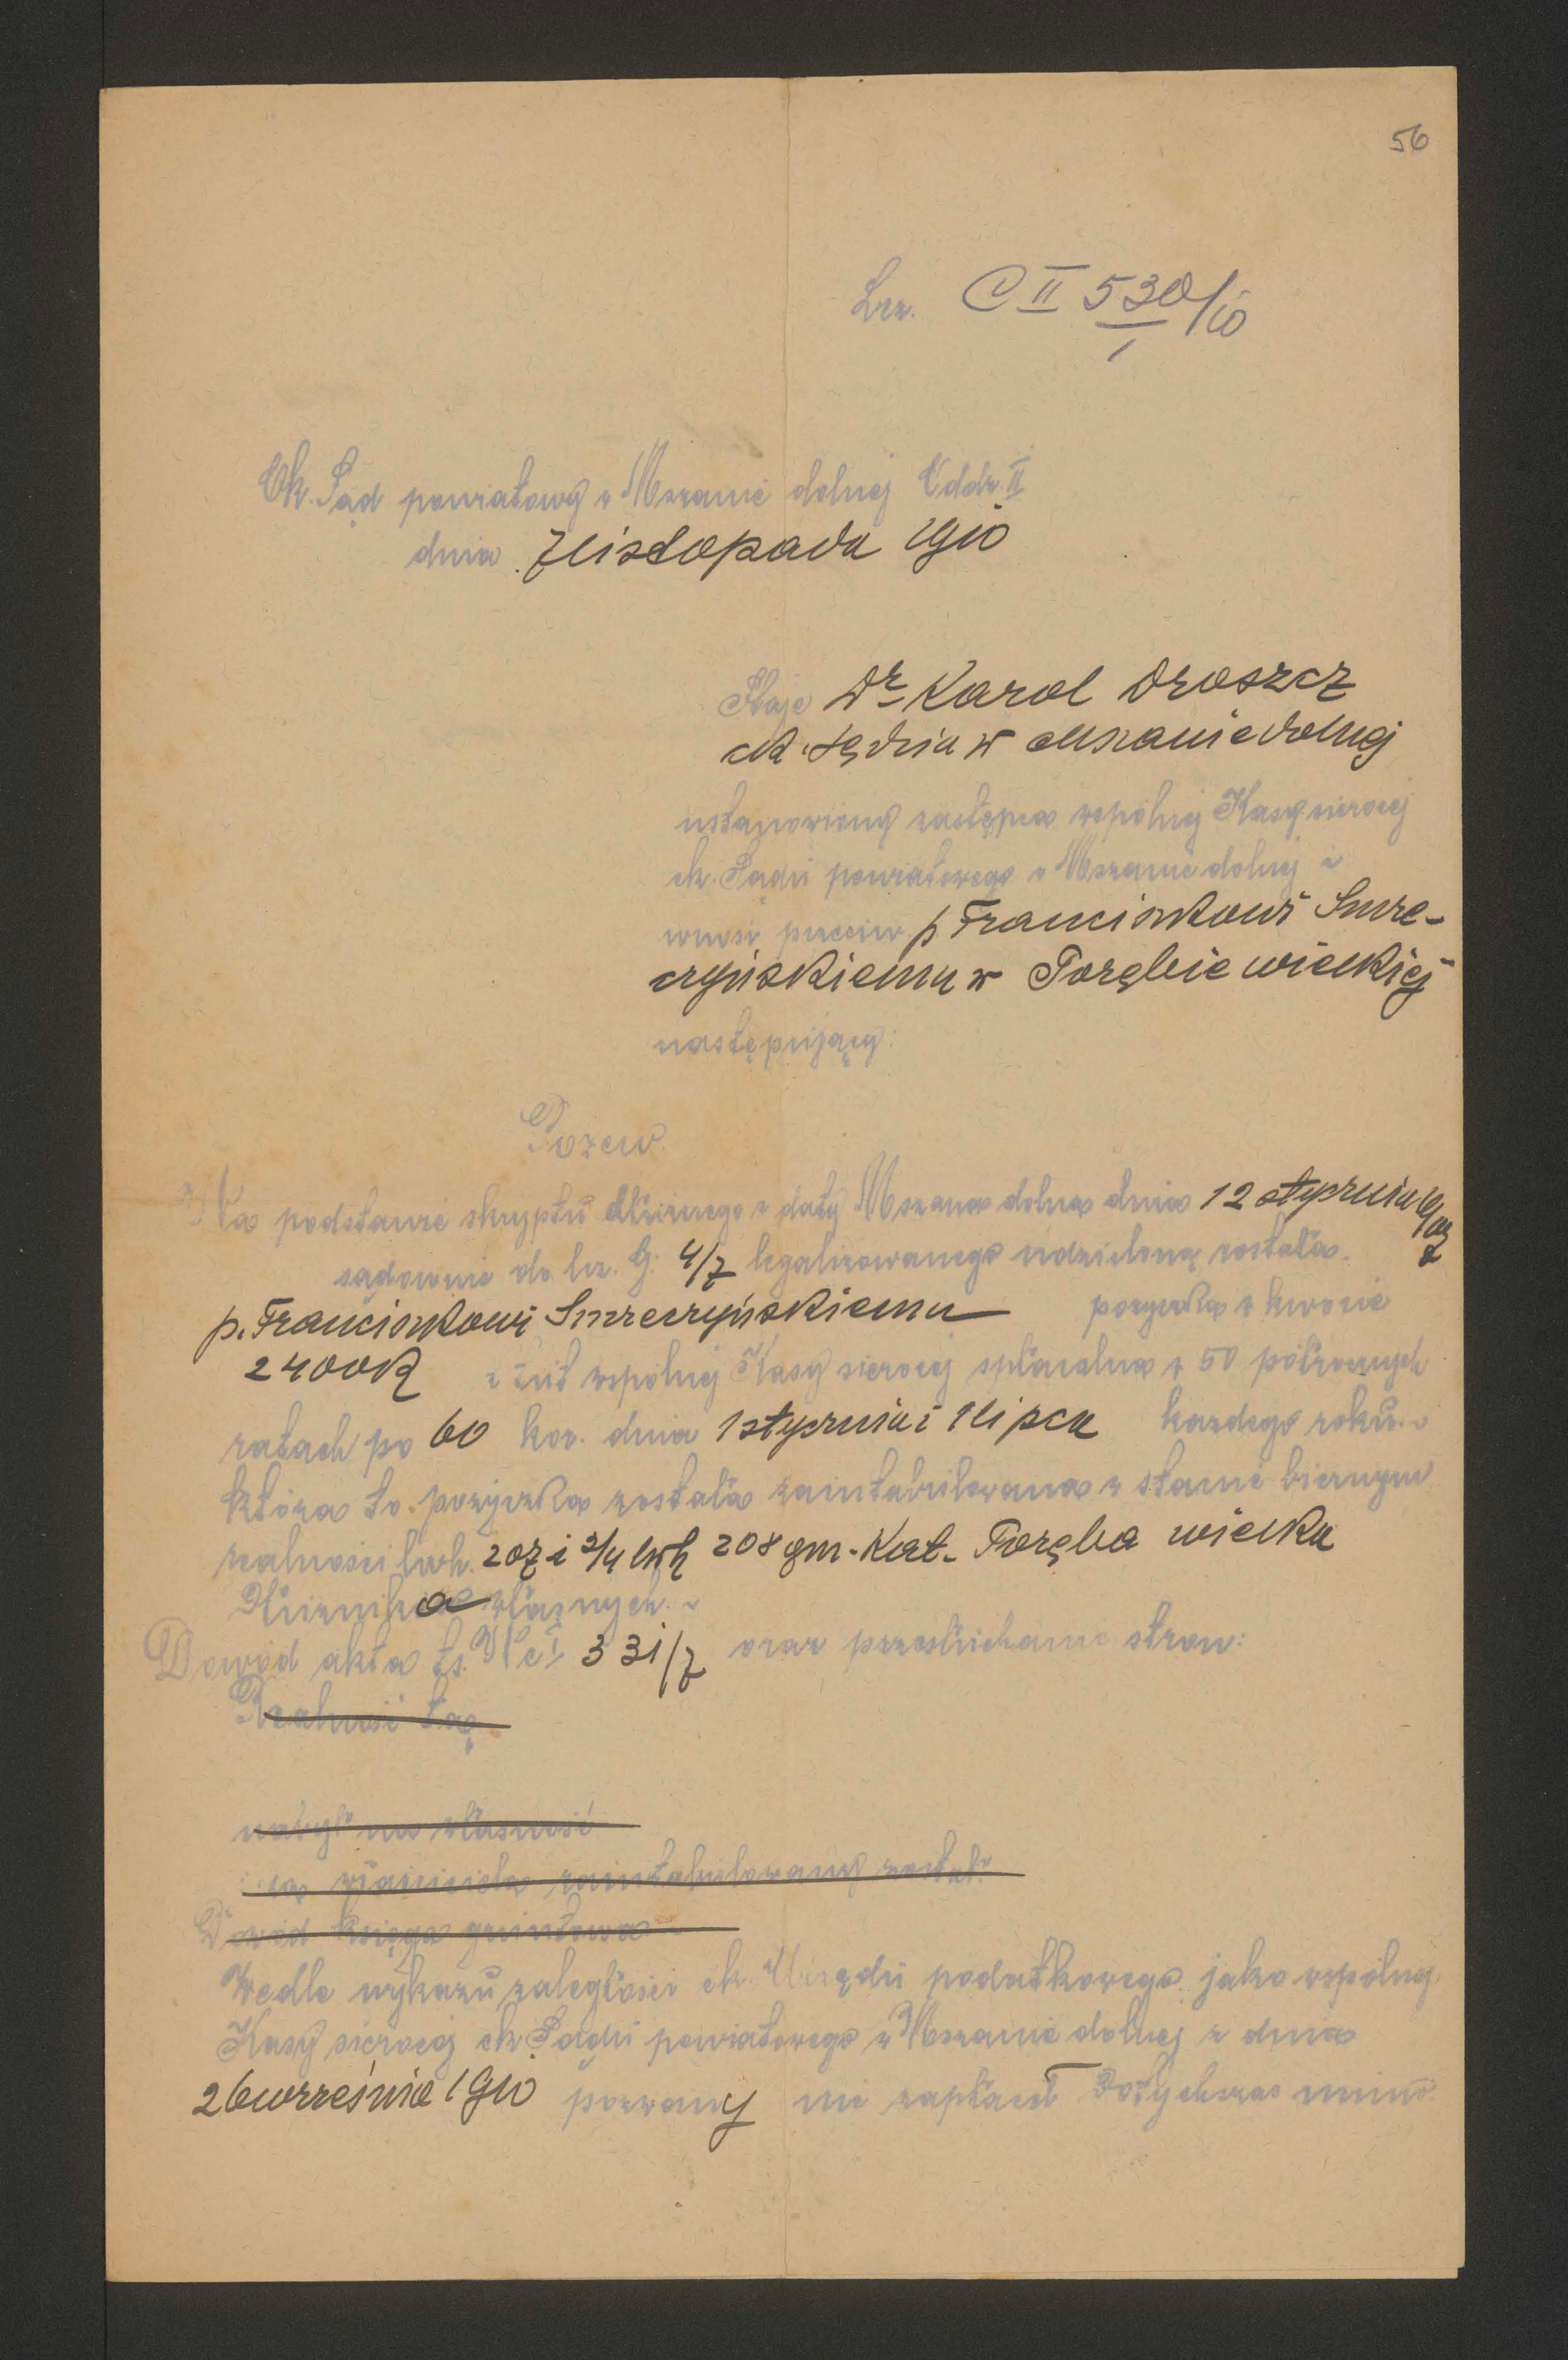 56
Lcz. C II 530/10
1
Ck. Sąd powiatowy w Mszanie dolnej Oddz. II
dnia 7 listopada 1910
Staje Dr Karol Droszcz
ck. sędzia w Mszanie dolnej
ustanowiony zastępca wspólnej Kasy sierocej
ck. Sądu powiatowego w Mszanie dolnej i
wnosi przeciw p Franciszkowi Smre-
czyńskiemu w Porębie wielkiej
następujący:
Pozew.
Na podstawie skryptu dłużnego z daty Mszana dolna dnia 12 stycznia 1907
sądownie do lcz. G. 4/7 legalizowanego udzieloną została
p. Franciszkowi Smreczyńskiemu pożyczka w kwocie
2400K z tut wspólnej Kasy sierocej spłacalna w 50 półrocznych
ratach po 60 kor. dnia 1 stycznia i 1 lipca każdego roku.
która to pożyczka została zaintabulowana w stanie biernym
realności lwh. 207 i 2/4 lwh 208 gm. Kat. Poręba wielka
Dłużnika własnych.
Dowód akta ts. Nc I 331/7 oraz przesłuchanie stron:
Realność tę
nabył na własność
i za właściciela zaintabulowany został
Dowód księga gruntowa
Wedle wykazu zaległości ck. Urzędu podatkowego jako wspólnej
Kasy sierocej ck. Sądu powiatowego w Mszanie dolnej z dnia
26 września 1910 pozwany nie zapłacił dotychczas mimo